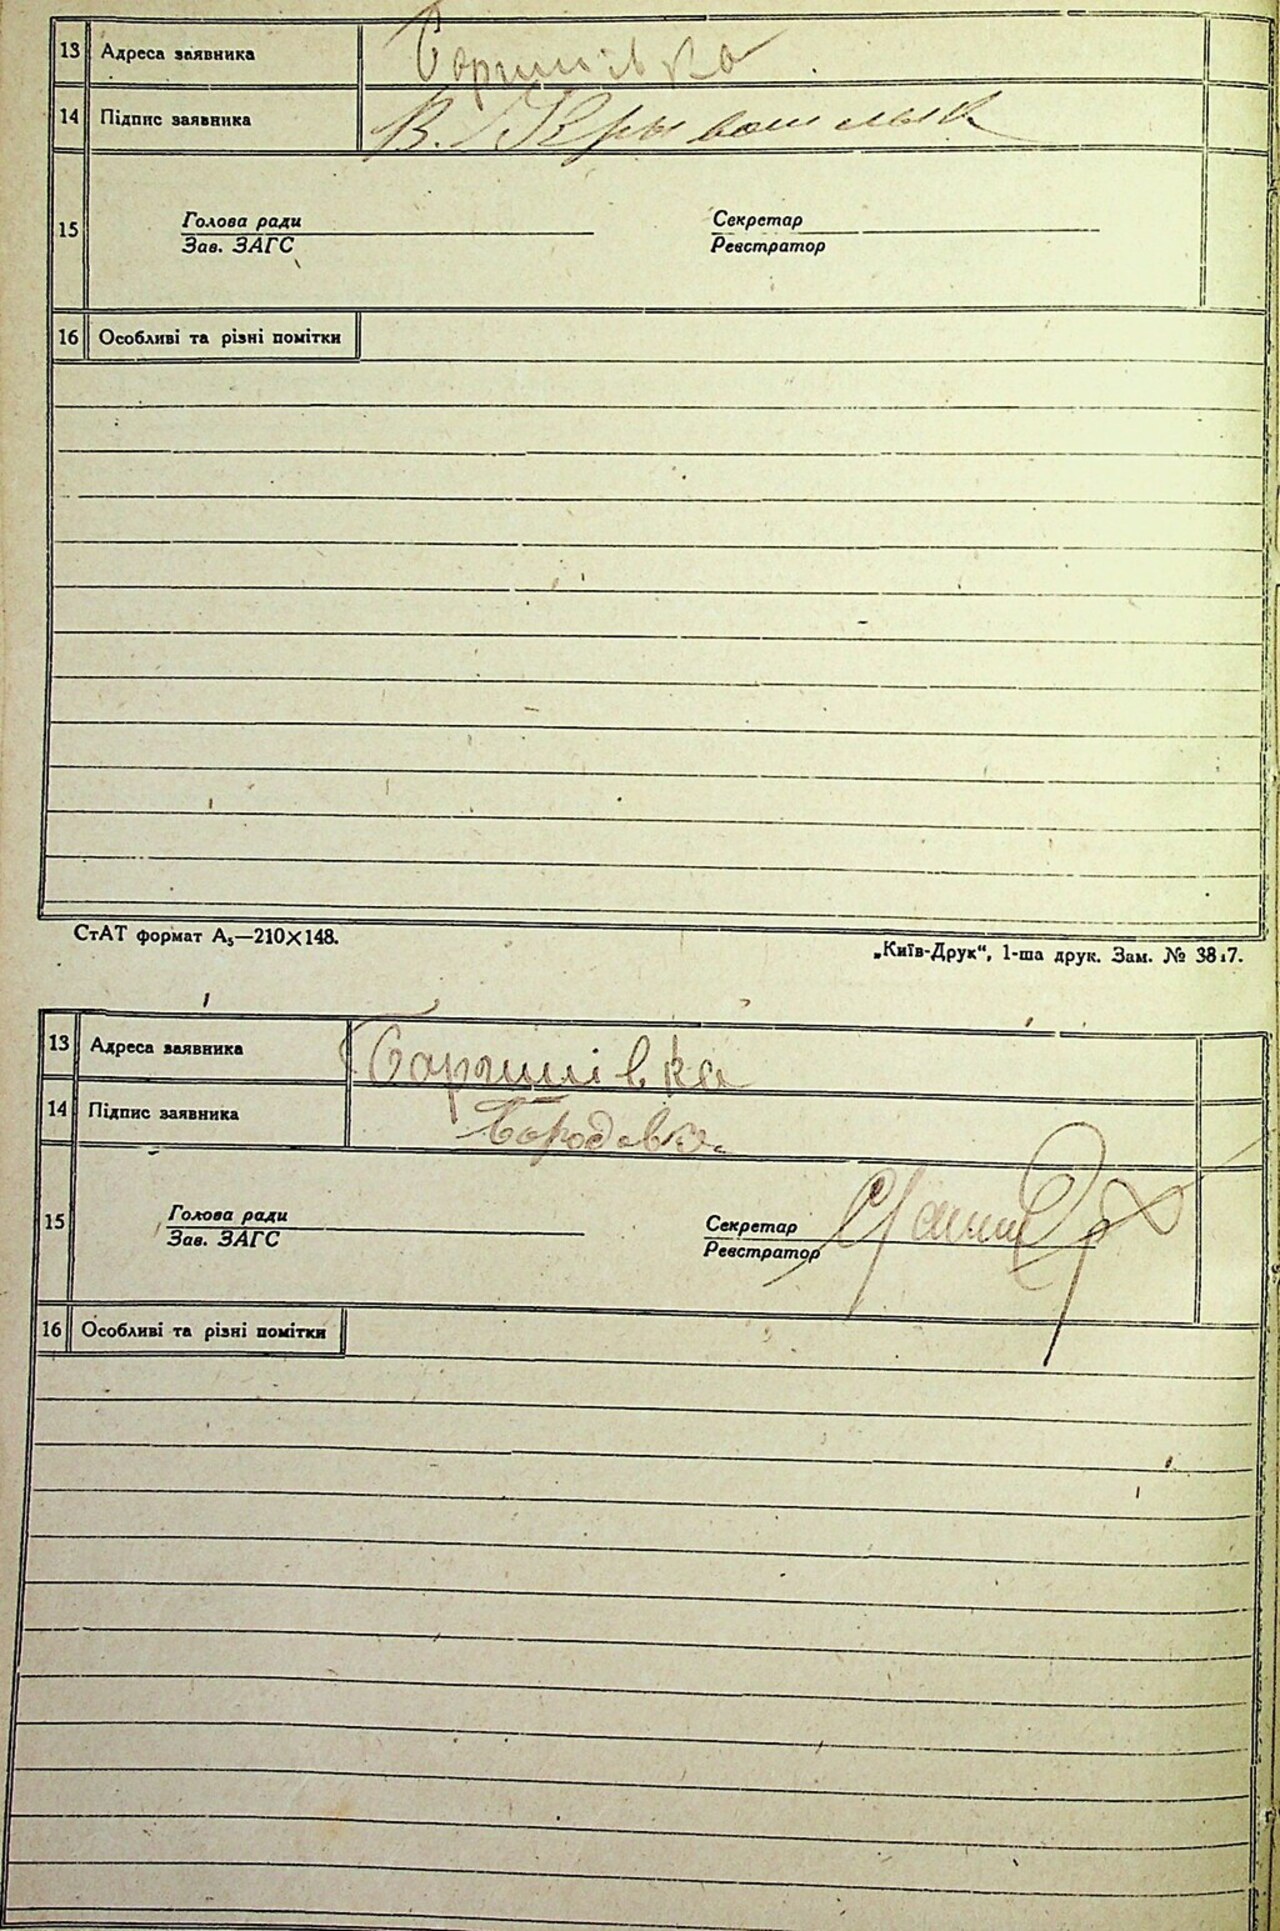 13 Адреса заявника Баришівка
14 Підпис заявника В.
15 Голова ради Секретар
Зав. ЗАГС Реєстратор
16 Особливі та різні помітки
СтАТ формат А₅—210×148. „Київ-Друк“, 1-ша друк. Зам. №
13 Адреса заявника Баришівка
14 Підпис заявника Бородавка
15 Голова ради Секретар
Зав. ЗАГС Реєстратор
16 Особливі та різні помітки